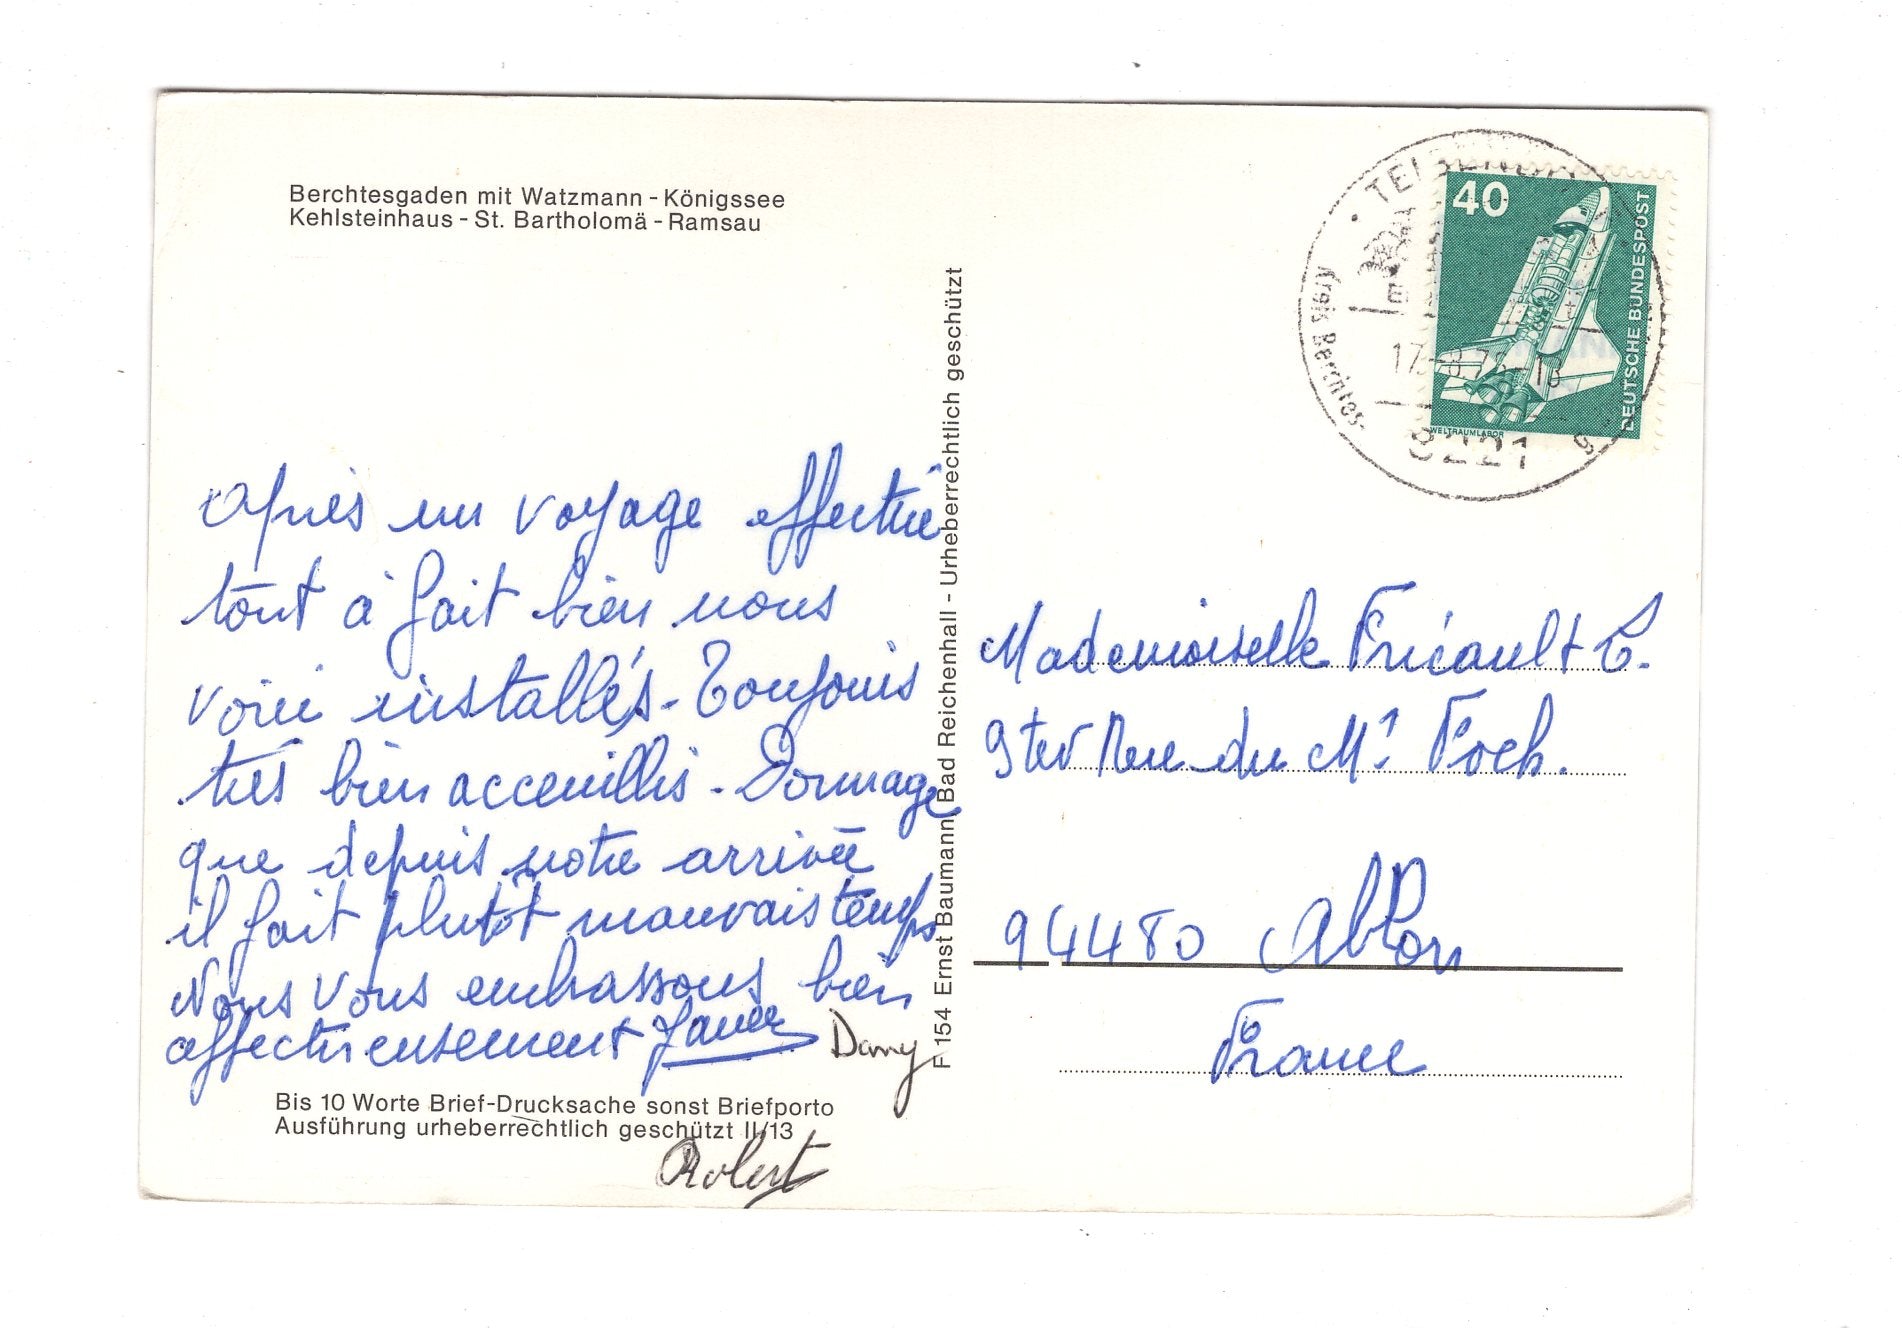 Berchtesgaden mit Watzmann - Königssee
Kehlsteinhaus - St. Bartholomä - Ramsau
Après un voyage effectué
tout à fait bien nous
voici installés - Toujours
très bien acceuillis - Dommage
que depuis notre arrivée
il fait plutôt mauvais temps
Nous vous embrassons bien
affectueusement
Dany
Robert
Bis 10 Worte Brief-Drucksache sonst Briefporto
Ausführung urheberrechtlich geschützt II/13
F 154 Ernst Baumann Bad Reichenhall - Urheberrechtlich geschützt
40
DEUTSCHE BUNDESPOST
WELTRAUMLABOR
Kreis Berchtes-
8221
Mademoiselle Fricault C.
9 ter Rue du Mal Foch.
94480 Ablon
France